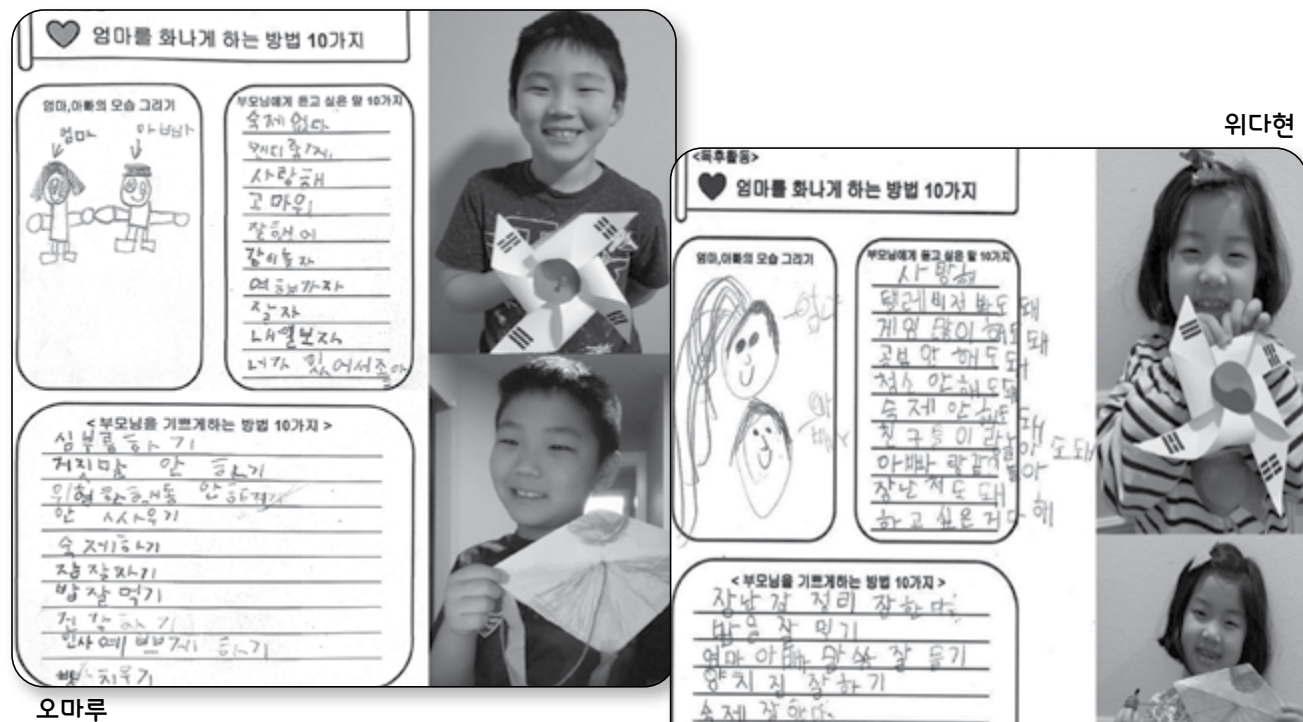 엄마를 화나게 하는 방법 10가지
엄마,아빠의 모습 그리기
엄마
아빠
부모님에게 듣고 싶은 말 10가지
숙제 없다
사랑해
고마워
잘했어
같이놀자
여행가자
잘자
네가 있어서좋아
<부모님을 기쁘게하는 방법 10가지>
심부름하기
거짓말 안 하기
위험한행동 안하기
안 싸우기
숙제하기
잠잘자기
밥잘먹기
인사 예쁘게 하기
오마루
위다현
<독후활동>
엄마를 화나게 하는 방법 10가지
엄마,아빠의 모습 그리기
부모님에게 듣고 싶은 말 10가지
사랑해
텔레비전 봐도 돼
게임 많이 해도 돼
공부 안 해도 돼
청소 안해도돼
숙제 안해도 돼
장난 쳐도 돼
하고 싶은거 다 해
<부모님을 기쁘게하는 방법 10가지>
장난감 정리 잘한다
밥을 잘 먹기
엄마 아빠 말씀 잘 듣기
양치질 잘하기
숙제 잘한다